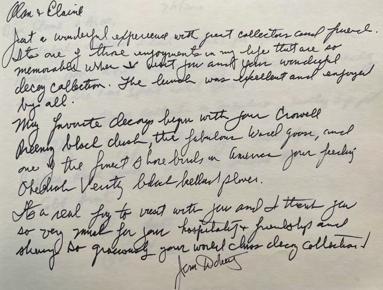 Alan & Elaine
Just a wonderful experience with great collectors and friends.
Its one of those enjoyments in my life that are so
memorable when I visit you and your wonderful
decoy collection. The lunch was excellent and enjoyed
by all.
My favorite decoys begin with your Crowell
Preening black duck, the fabulous Ward goose, and
one of the finest shore birds in America your feeding
Obediah Verity black bellied plover.
Its a real joy to visit with you and I thank you
so very much for your hospitality & friendship and
sharing so graciously your world class decoy collection!